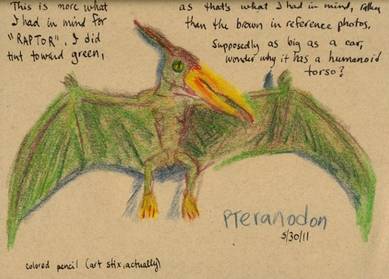 This is more what
I had in mind for
"RAPTOR". I did
tint toward green,
as that's what I had in mind, rather
than the brown in reference photos.
Supposedly as big as a car,
wonder why it has a humanoid
torso?
Pteranodon
5/30/11
colored pencil (art stix, actually)